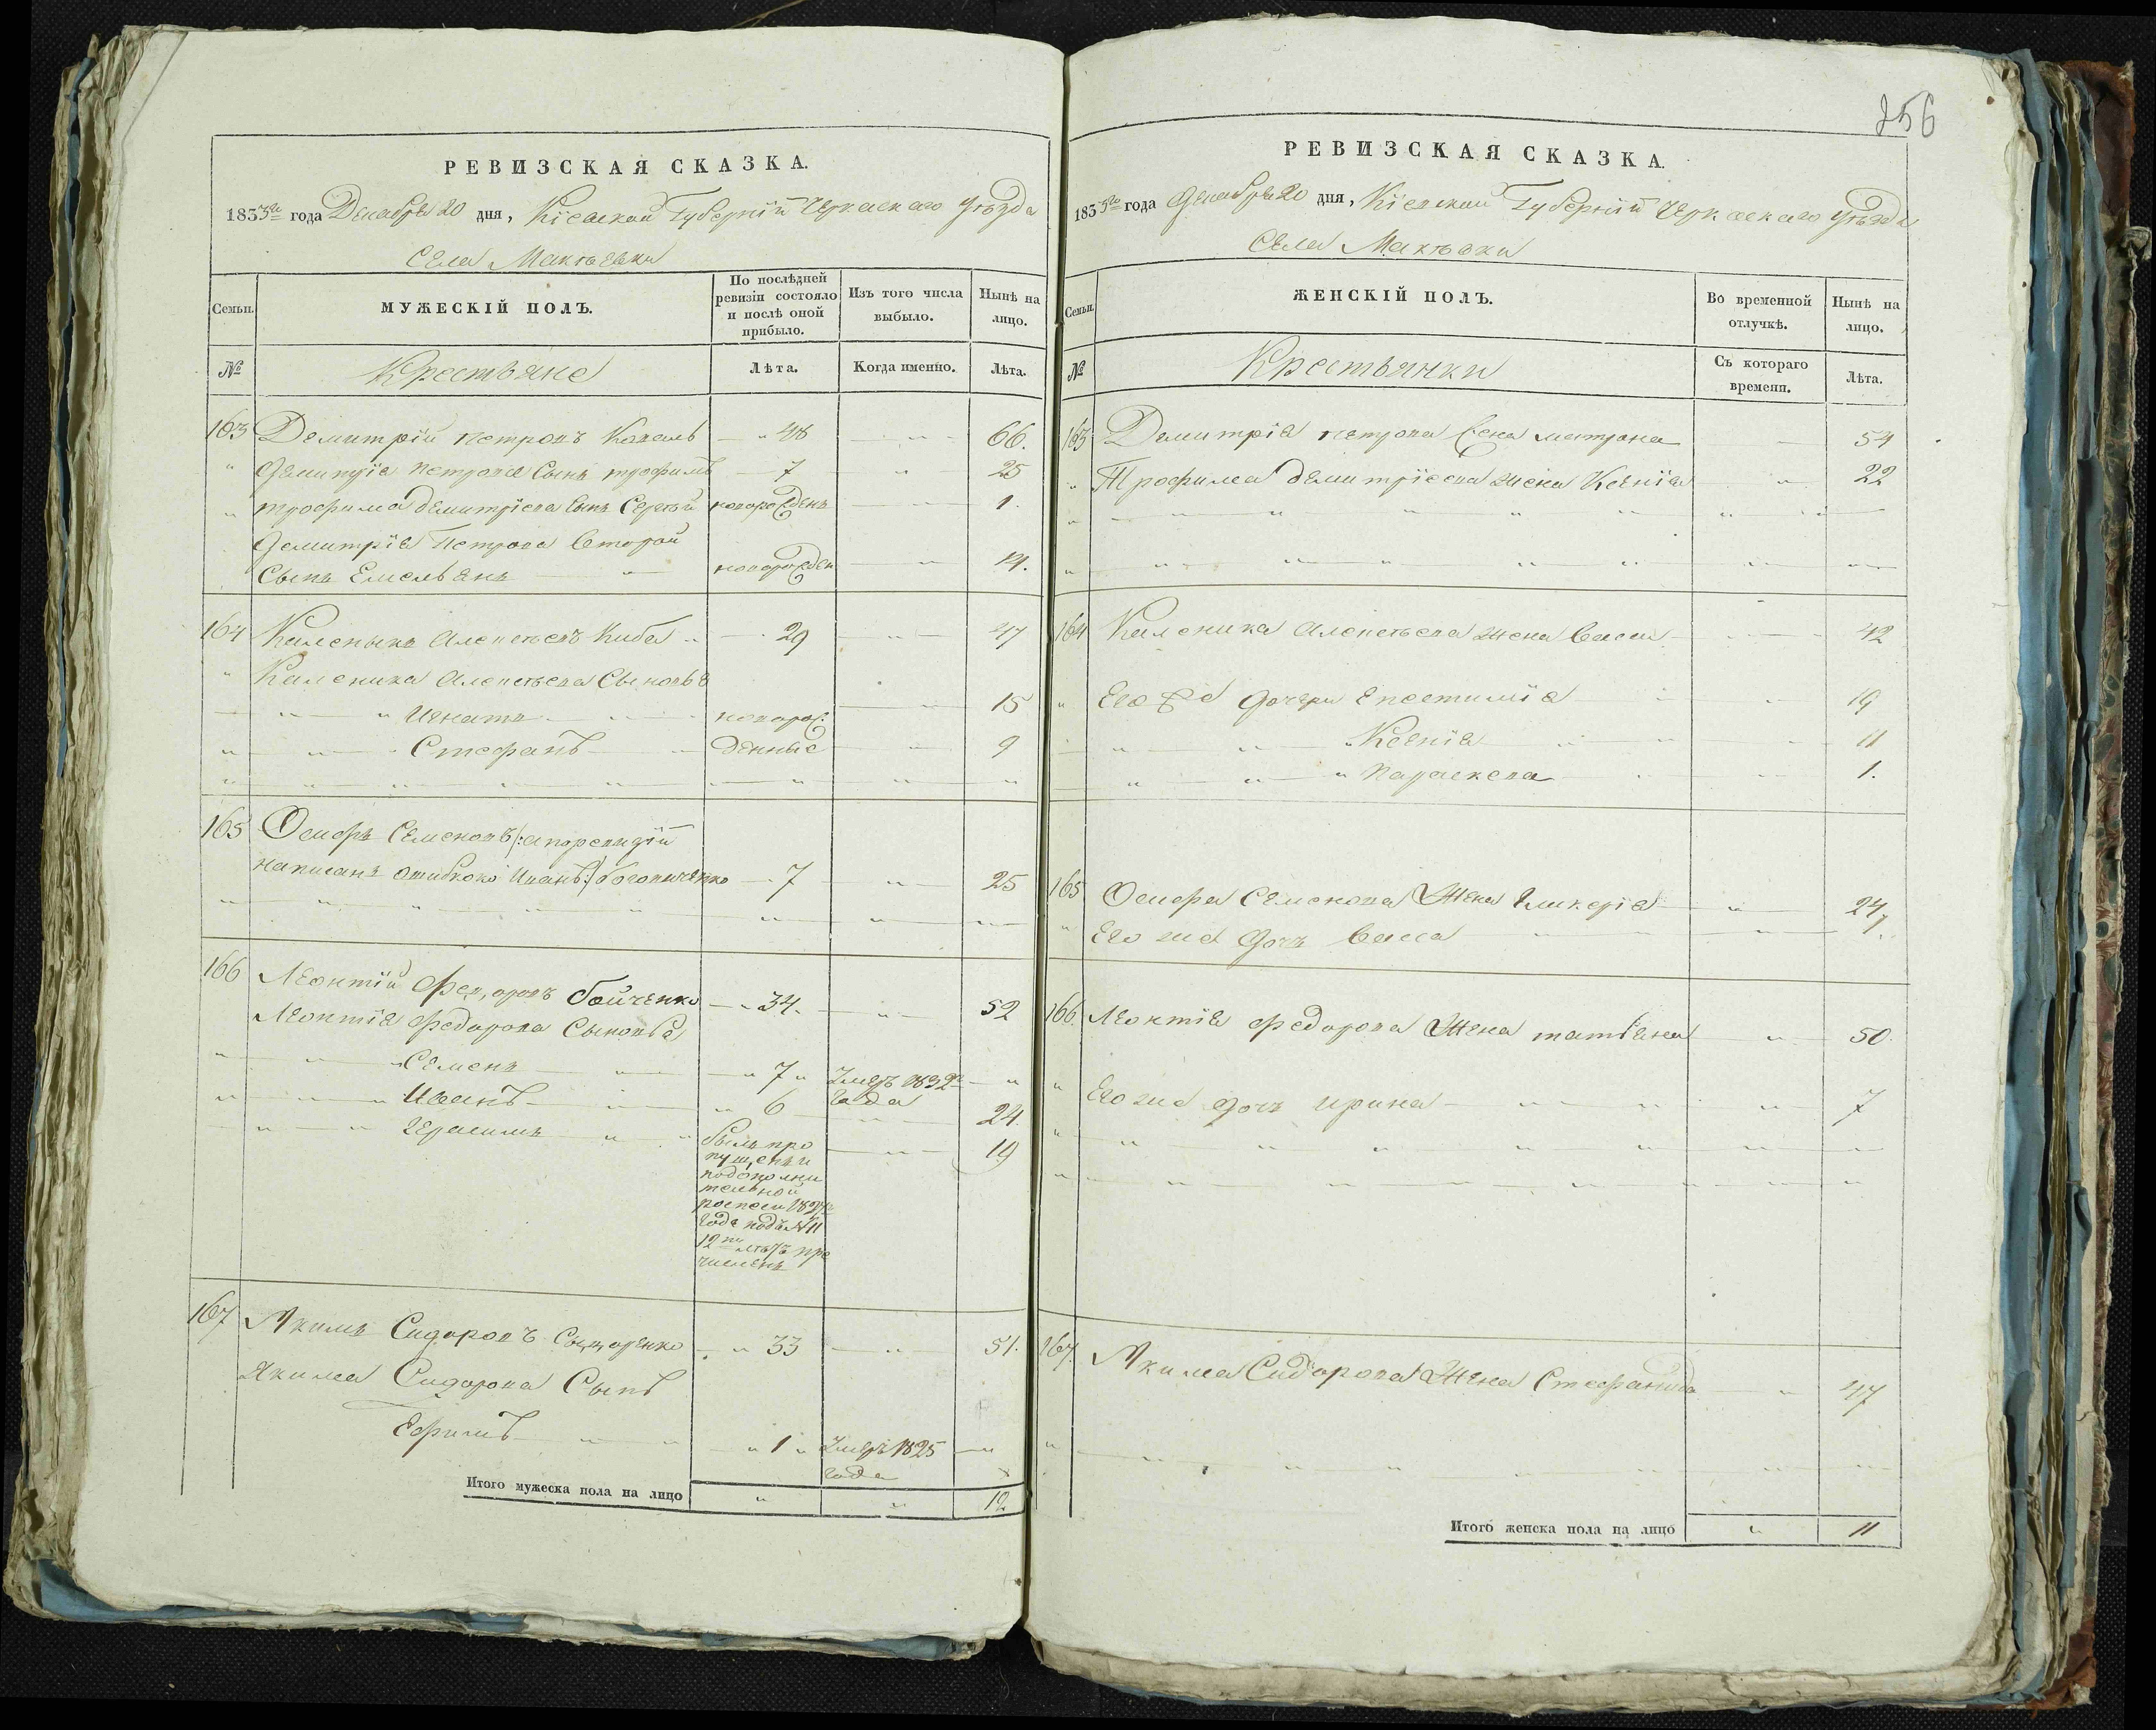 РЕВИЗСКАЯ СКАЗКА.
183 года Декабря 20 дня, Кіевской Губерніи Черкаскаго уѣзда
Села Макѣевки
Семьи.
МУЖЕСКІЙ ПОЛЪ.
По послѣдней ревизіи состояло и послѣ оной прибыло.
Изъ того числа выбыло.
Нынѣ на лицо.
№
Крестьяне
Лѣта.
Когда именно.
Лѣта.
163 Демитрій Петровъ Коваль 48 66.
Демитрія Петрова Сынъ Трофимъ 7 25
Трофима Демитріева Сынъ Сергѣй новорожденъ 1.
Демитрія Петрова Второй
Сынъ Емельянъ новорожден 14.
164 Каленыкъ Алексѣевъ Киба 29 47
Каленика Алексѣева Сыновья
Игнатъ новорож: 15
Стефанъ денные 9
165 Осифъ Семеновъ /:а по ревизіи
написанъ ошибкою Иванъ:/ 7 25
166 Леонтій Федоровъ Бойченко 34. 52
Леонтія Федорова Сыновья
Семенъ 7 Умеръ 1832го
года
Иванъ 6 24.
Герасимъ былъ про 19
пущенъ и
по дополни
тельной
росписи
года подъ № 11
12ти лѣтъ при
численъ
167 Якимъ Сидоровъ 33 51.
Якима Сидорова Сынъ
Ефимъ 1 Умеръ 1825
года
Итого мужеска пола на лицо 12
256
РЕВИЗСКАЯ СКАЗКА.
183 года Декабря 20 дня, Кіевской Губерніи Черкаскаго уѣзда
Села Макѣвки
Семьи.
ЖЕНСКІЙ ПОЛЪ.
Во временной отлучкѣ.
Нынѣ на лицо.
№
Крестьянки
Съ котораго времени.
Лѣта.
163 Демитрія Петрова жена Матрона 54
Трофима Демитріева жена Ксенія 22
164 Каленика Алексѣева жена 42
Его же дочери Евстимія 19
Ксенія 11
Параскева 1.
165 Осифа Семенова жена Гликерія 24
Его же дочь Васса 1.
166. Леонтія Федорова жена Татіяна 50.
Его же дочь Ирина 7
167. Якима Сидорова жена Стефанида 47
Итого женска пола на лицо 11